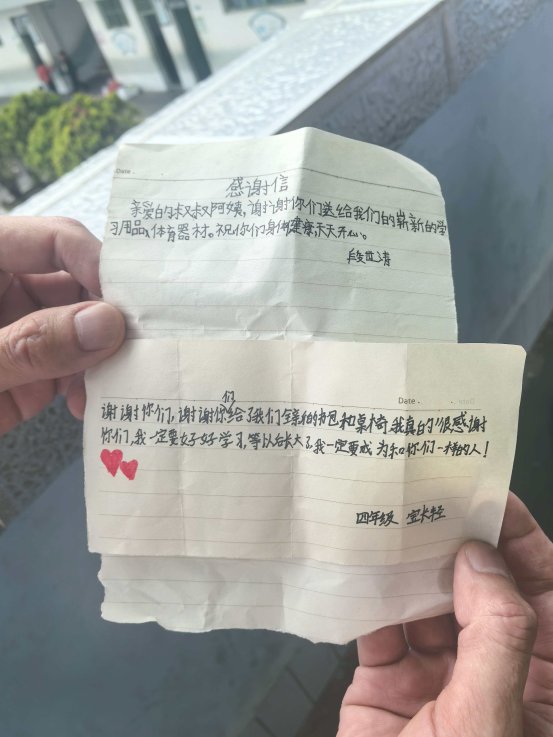 Date.
感谢信
亲爱的叔叔阿姨,谢谢你们送给我们的崭新的学
习用品、体育器材。祝你们身体健康,天天开心。
Date.
们
谢谢你们,谢谢你给了我们全新的书包和桌椅,我真的很感谢
你们,我一定要好好学习,等以后长大了,我一定要成为和你们一样的人!
四年级